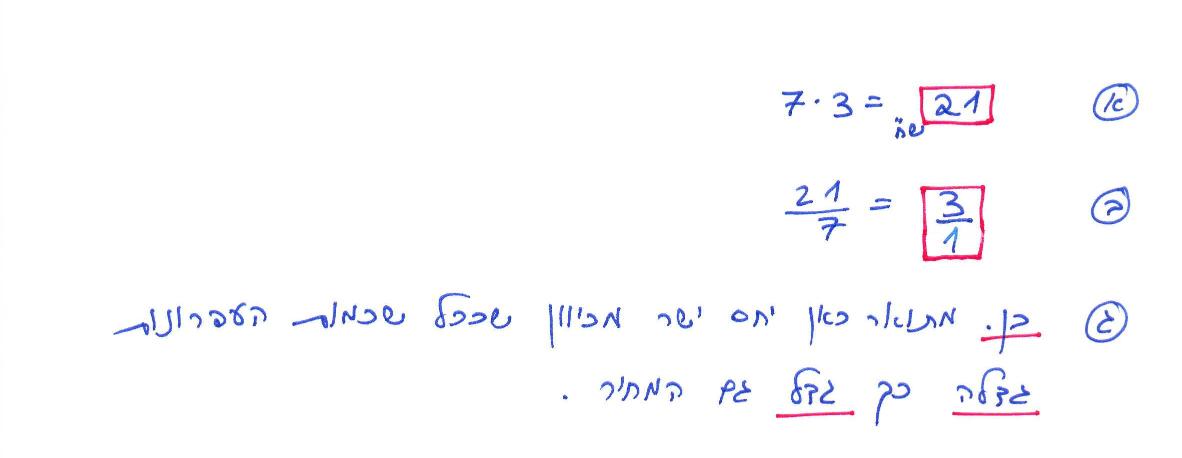 א 7·3 = 21 ש"ח
ב 21/7 = 3/1
ג כן. מתואר כאן יחס ישר מכיוון שככל שכמות העפרונות
גדלה כך גדל גם המחיר.